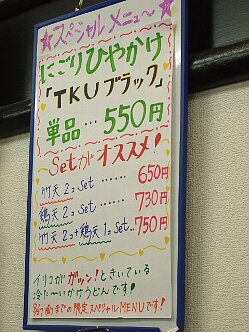 ☆スペシャルメニュ〜☆
にごりひやかけ
「TKUブラック」
単品…550円
Setがオススメ!
竹天2コSet……650円
鶏天2コSet……730円
竹天2コ+鶏天1コSet..750円
イリコがガッン!ときいている
冷た〜いかけうどんです♥
限定スペシャルMENUです!